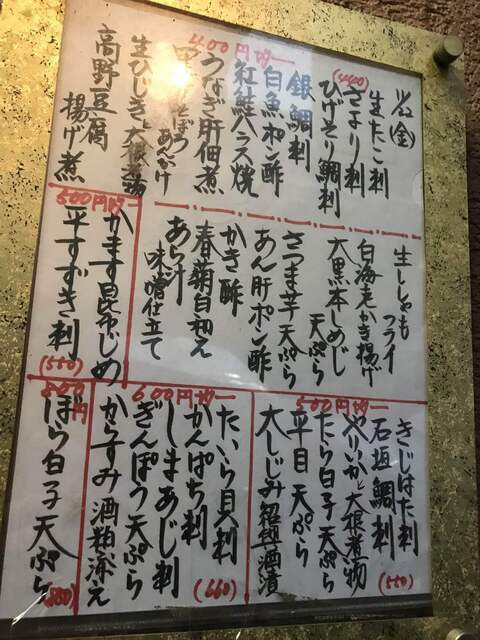 11/22(金)
400円均一
(440)
生たこ刺
さより刺
ひげそり鯛刺
銀鯛刺
白魚ポン酢
紅鮭ハラス焼
うなぎ肝佃煮
そぼろあんかけ
生ひじきと大根煮物
高野豆腐揚げ煮
生ししゃもフライ
白海老かき揚げ
大黒本しめじ天ぷら
さつま芋天ぷら
あん肝ポン酢
かき酢
春菊白和え
あら汁味噌仕立て
500円均一
かます昆布じめ
平すずき刺
(550)
500円均一
きじはた刺
石垣鯛刺
やりいかと大根煮物
たら白子天ぷら
平目天ぷら
大しじみ紹興酒漬
(550)
600円均一
たいら貝刺
かんぱち刺
しまあじ刺
ぎんぽう天ぷら
からすみ酒粕添え
(660)
800円
ぼら白子天ぷら
(880)